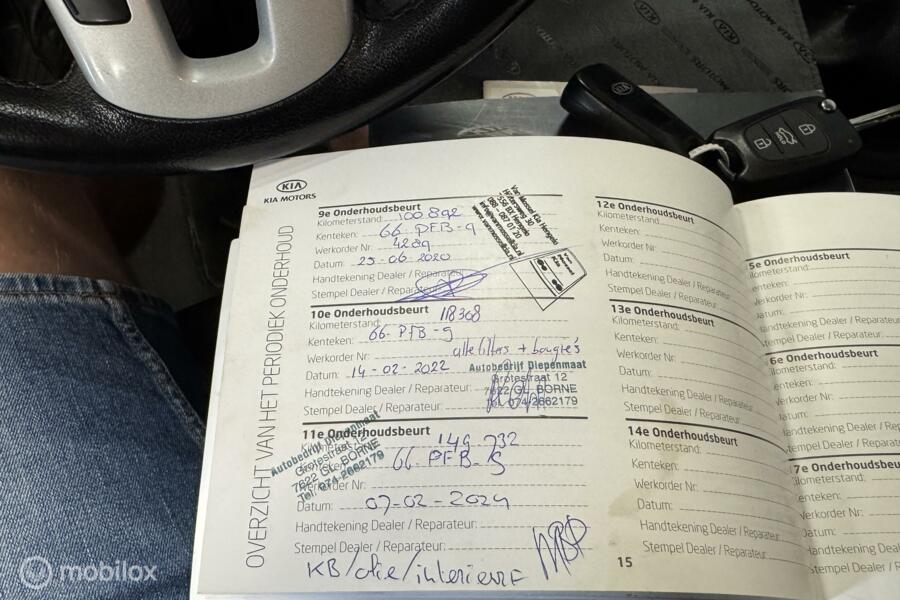 KIA
KIA MOTORS
OVERZICHT VAN HET PERIODIEK ONDERHOUD
9e Onderhoudsbeurt
Kilometerstand: 100892
Kenteken: 66 PFB-9
Werkorder Nr: 4289
Datum: 25-06-2020
Handtekening Dealer / Reparateur:
Stempel Dealer / Reparateur:
Van Mossel Kia Hengelo
088 - 087 01 20
10e Onderhoudsbeurt
Kilometerstand: 118368
Kenteken: 66-PFB-9
Werkorder Nr: alle filters + bougie's
Datum: 14-02-2022
Handtekening Dealer / Reparateur:
Stempel Dealer / Reparateur:
Autobedrijf Diepenmaat
Grotestraat 12
7622 GL BORNE
Tel. 074-2662179
11e Onderhoudsbeurt
Kilometerstand: 149 732
Kenteken: 66 PFB-9
Werkorder Nr:
Datum: 07-02-2024
Handtekening Dealer / Reparateur:
Stempel Dealer / Reparateur:
Autobedrijf Diepenmaat
Grotestraat 12
7622 GL BORNE
Tel. 074-2662179
KB/olie/interieurF
12e Onderhoudsbeurt
Kilometerstand:
Kenteken:
Werkorder Nr:
Datum:
Handtekening Dealer / Reparateur
Stempel Dealer / Reparateur
13e Onderhoudsbeurt
Kilometerstand:
Kenteken:
Werkorder Nr:
Datum:
Handtekening Dealer / Reparateur
Stempel Dealer / Reparateur
14e Onderhoudsbeurt
Kilometerstand:
Kenteken:
Werkorder Nr:
Datum:
Handtekening Dealer / Reparateur
Stempel Dealer / Reparateur
15
5e Onderhoudsbeurt
6e Onderhoudsbeurt
7e Onderhoudsbeurt
KIA MOTORS
KIA
mobilox